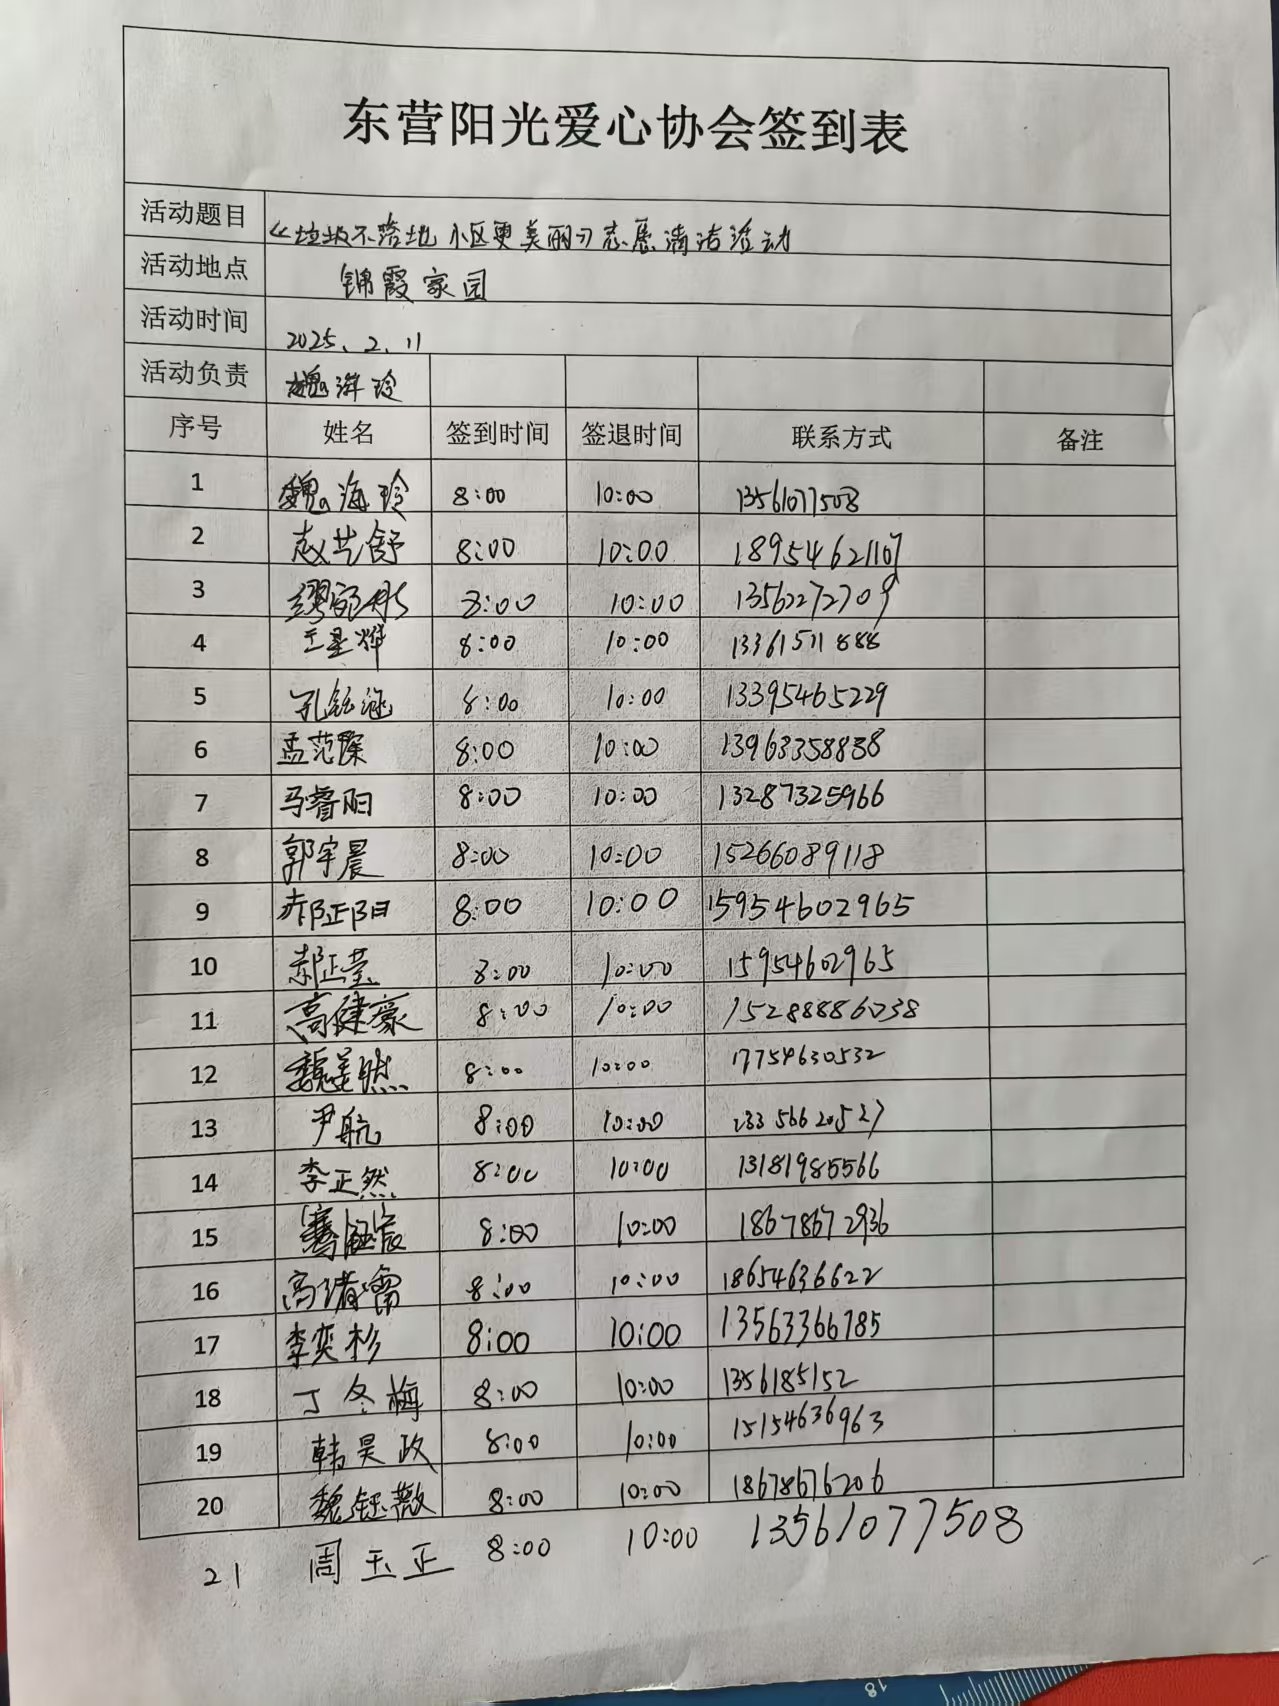 东营阳光爱心协会签到表
活动题目 《垃圾不落地 小区更美丽》志愿清洁活动
活动地点 锦霞家园
活动时间 2025、2、11
活动负责 魏海玲
序号 姓名 签到时间 签退时间 联系方式 备注
1 魏海玲 8:00 10:00 13561077508
2 赵艺舒 8:00 10:00 18954621107
3 缪宛彤 8:00 10:00 13562272709
4 王星烨 8:00 10:00 13361511888
5 孔钰涵 8:00 10:00 13395465229
6 孟范琛 8:00 10:00 13963358838
7 马睿阳 8:00 10:00 13287325966
8 郭宇晨 8:00 10:00 15266089118
9 郝正阳 8:00 10:00 15954602965
10 郝正莹 8:00 10:00 15954602965
11 高健豪 8:00 10:00 15288886038
12 魏美然 8:00 10:00 17754630532
13 尹航 8:00 10:00
14 李正然 8:00 10:00 13181985566
15 8:00 10:00 18678672936
16 8:00 10:00 18654636622
17 李奕杉 8:00 10:00 13563366785
18 丁冬梅 8:00 10:00 1356185152
19 韩昊政 8:00 10:00 15154636963
20 魏钰薇 8:00 10:00 18678676206
21 周玉正 8:00 10:00 13561077508
18